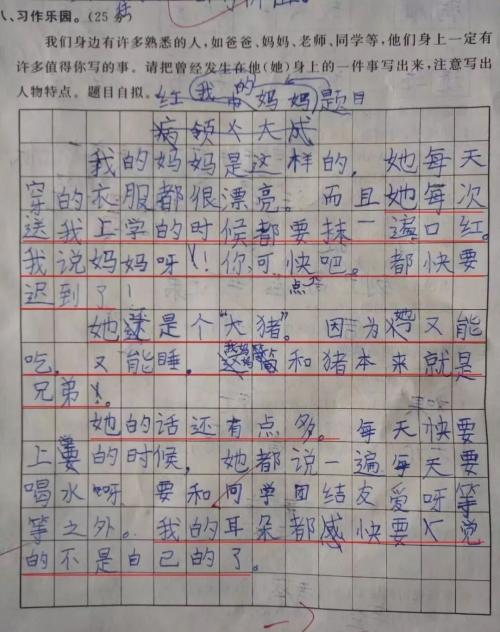 八、习作乐园。(25分
我们身边有许多熟悉的人,如爸爸、妈妈、老师、同学等,他们身上一定有
许多值得你写的事。请把曾经发生在他(她)身上的一件事写出来,注意写出
人物特点。题目自拟。
红 我的妈妈 题目
我的妈妈是这样的,她每天
穿的衣服都很漂亮。而且她每次
送我上学的时候都要抹一遍口红。
我说妈妈呀!你可快点吧。都快要
迟到了!
她还是个“大猪”。因为又能
吃,又能睡,我妈妈和猪本来就是
兄弟。
她的话还有点多。每天快要
上学的时候,她都说一遍每天要
喝水呀要和同学团结友爱呀等
等之外。我的耳朵都感快要觉
的不是自己的了。